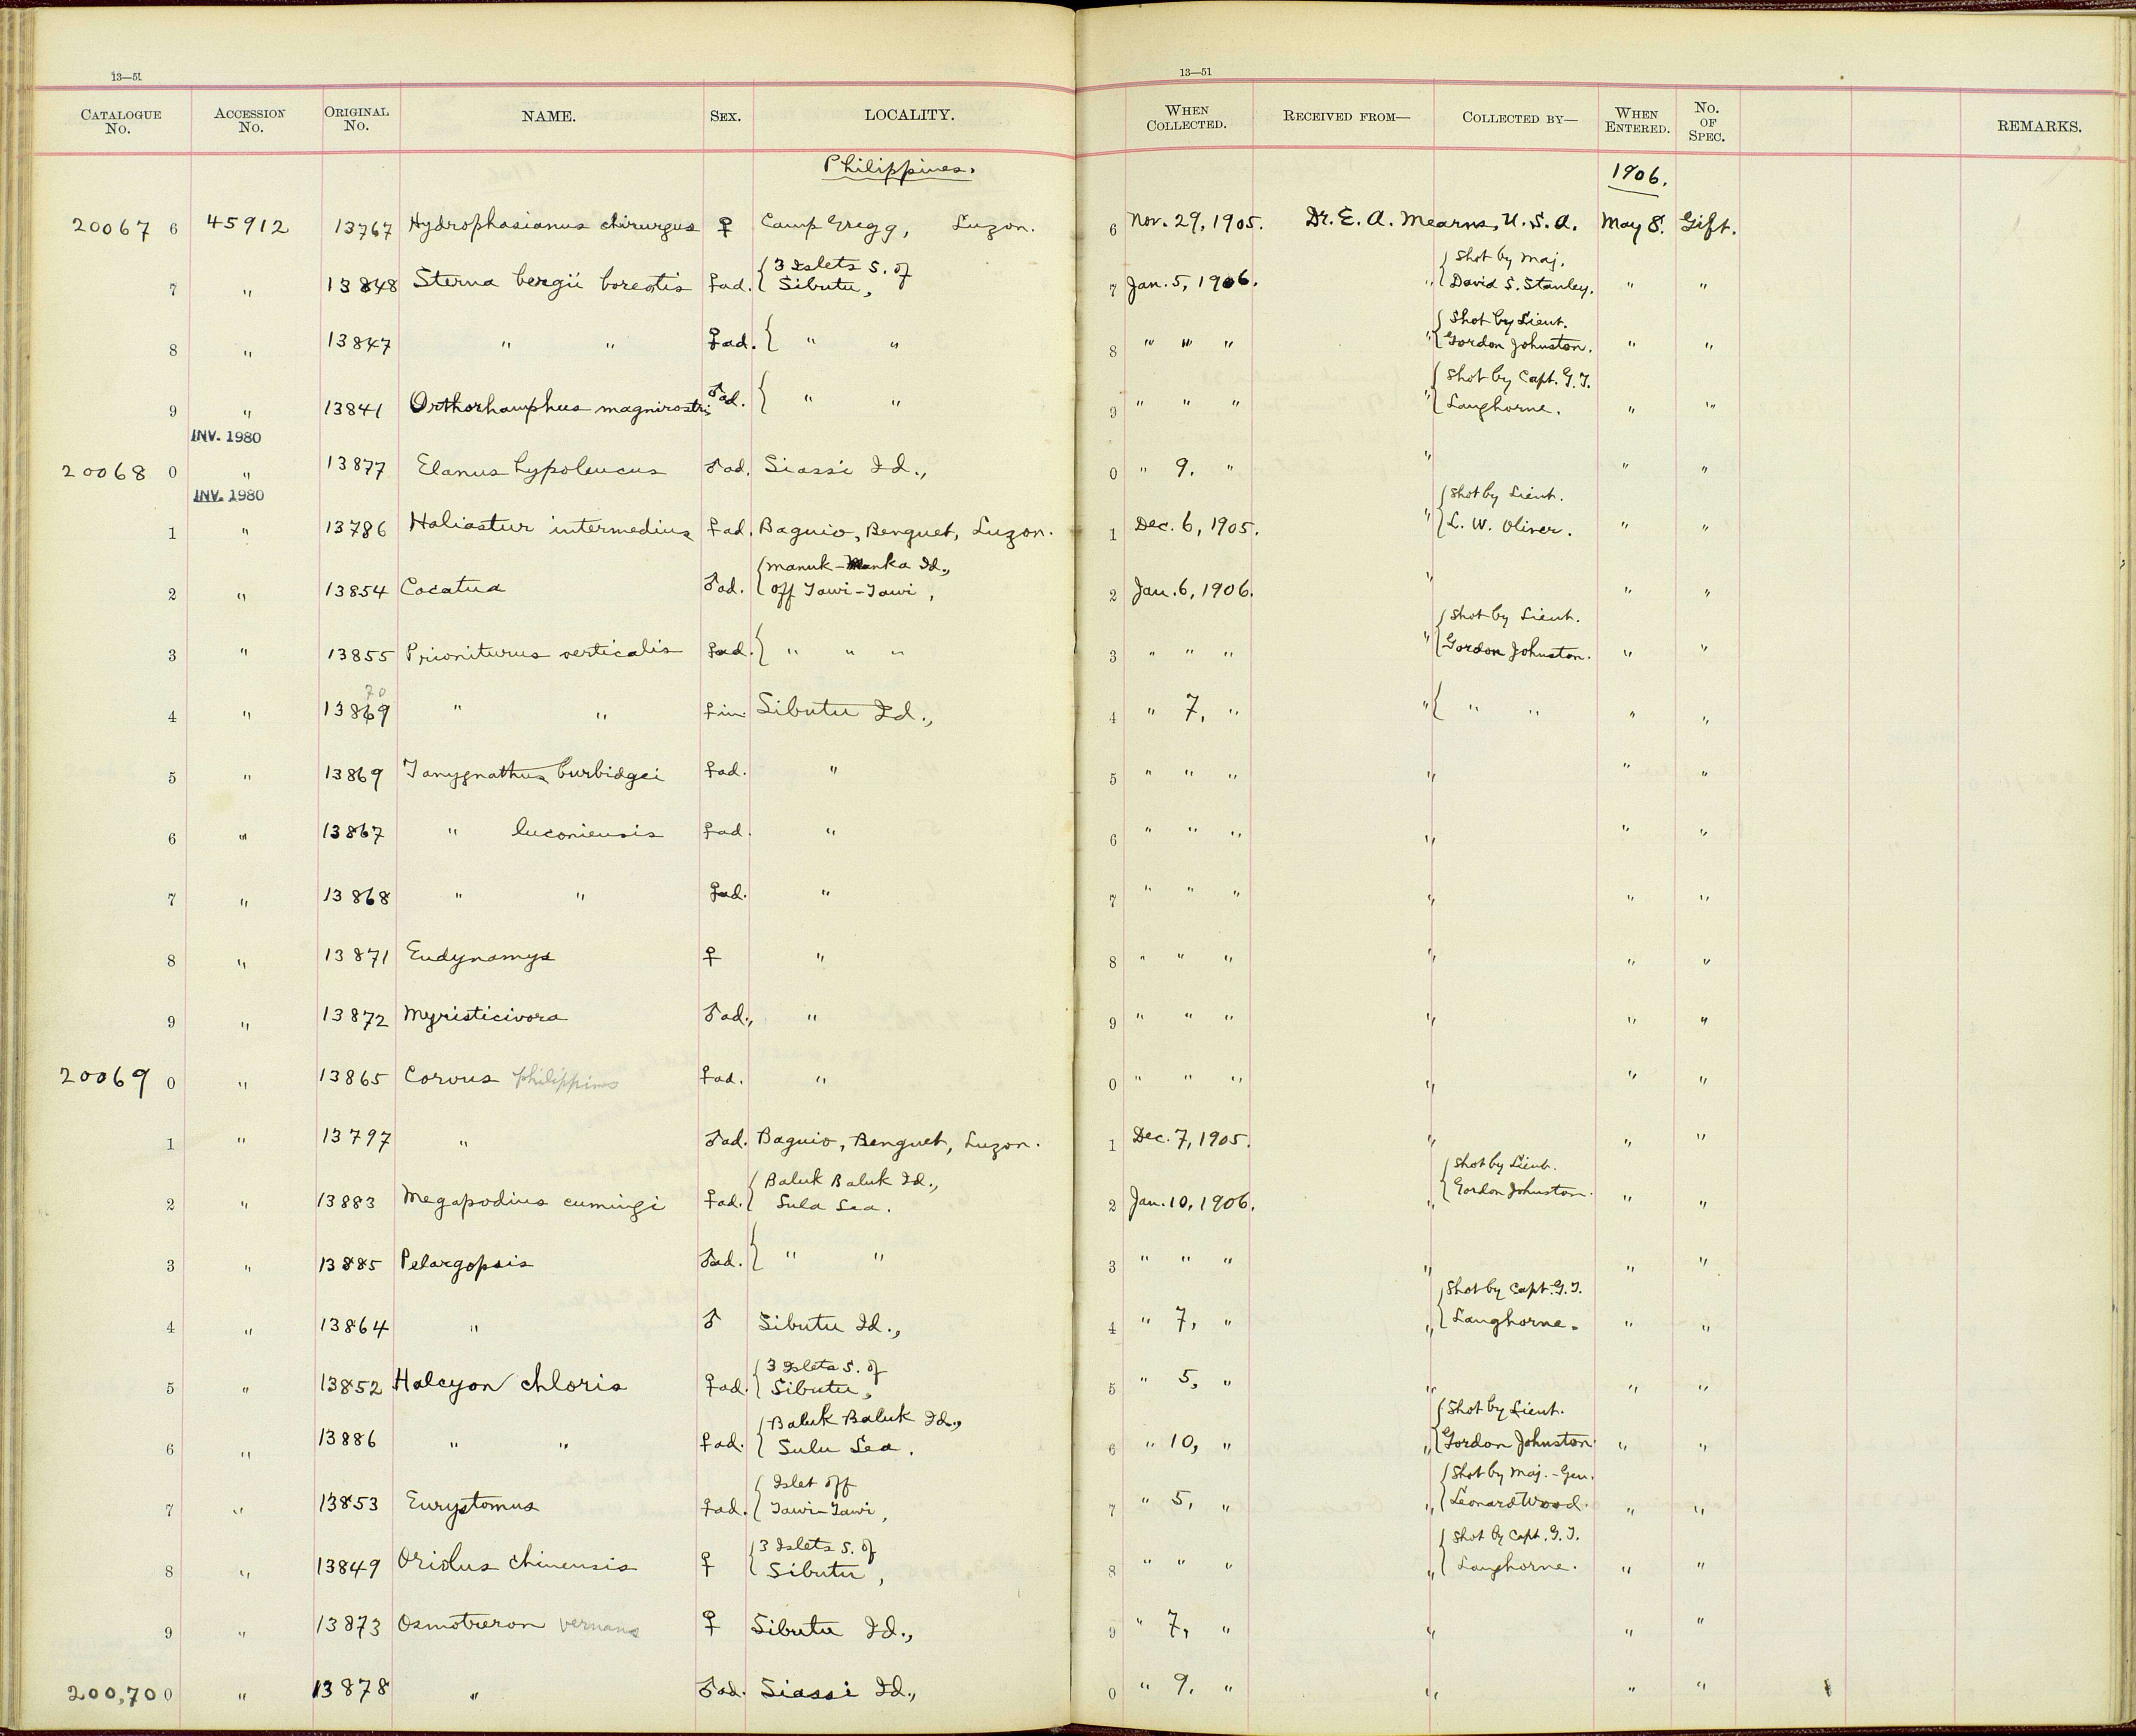 13—51
13—51
CATALOGUE No. ACCESSION No. ORIGINAL No. NAME. SEX. LOCALITY. WHEN COLLECTED. RECEIVED FROM— COLLECTED BY— WHEN ENTERED. No. OF SPEC. REMARKS.
Philippines. 1906.
20067 6 45912 13767 Hydrophasianus chirurgus ♀ Camp Gregg, Luzon. 6 Nov. 29, 1905. Dr. E. A. Mearns, U.S.A. May 8. Gift.
7 " 13848 Sterna bergii boreotis ♀ad. { 3 Islets S. of Sibutu, 7 Jan. 5, 1906. " { Shot by Maj. David S. Stanley. " "
8 " 13847 " " ♀ad. { " " 8 " " " " { Shot by Lieut. Gordon Johnston. " "
9 " 13841 Orthorhamphus magnirostris ♂ad. { " " 9 " " " " { Shot by Capt. G. T. Langhorne. " "
INV. 1980
20068 0 " 13877 Elanus hypoleucus ♂ad. Siassi Id., 0 " 9, " " " "
INV. 1980
1 " 13786 Haliastur intermedius ♀ad. Baguio, Benguet, Luzon. 1 Dec. 6, 1905. " { Shot by Lieut. L. W. Oliver. " "
2 " 13854 Cacatua ♂ad. { Manuk-Manka Id., off Tawi-Tawi, 2 Jan. 6, 1906. " " "
3 " 13855 Prioniturus verticalis ♀ad. { " " " 3 " " " " { Shot by Lieut. Gordon Johnston. " "
70
4 " 13869 " " ♀im. Sibutu Id., 4 " 7, " " { " " " "
5 " 13869 Tanygnathus burbidgei ♀ad. " 5 " " " " " "
6 " 13867 " luconiensis ♀ad. " 6 " " " " " "
7 " 13868 " " ♀ad. " 7 " " " " " "
8 " 13871 Eudynamys ♀ " 8 " " " " " "
9 " 13872 Myristicivora ♂ad., " 9 " " " " " "
20069 0 " 13865 Corvus philippinus ♀ad. " 0 " " " " " "
1 " 13797 " ♂ad. Baguio, Benguet, Luzon. 1 Dec. 7, 1905. " " "
2 " 13883 Megapodius cumingi ♀ad. { Baluk Baluk Id., Sulu Sea. 2 Jan. 10, 1906. " { Shot by Lieut. Gordon Johnston. " "
3 " 13885 Pelargopsis ♂ad. { " " 3 " " " " " "
4 " 13864 " ♂ Sibutu Id., 4 " 7, " " { Shot by Capt. G. T. Langhorne. " "
5 " 13852 Halcyon chloris ♀ad. { 3 Islets S. of Sibutu, 5 " 5, " " " "
6 " 13886 " " ♀ad. { Baluk Baluk Id., Sulu Sea. 6 " 10, " " { Shot by Lieut. Gordon Johnston. " "
7 " 13853 Eurystomus ♀ad. { Islet off Tawi-Tawi, 7 " 5, " " { Shot by Maj.-Gen. Leonard Wood. " "
8 " 13849 Oriolus chinensis ♀ { 3 Islets S. of Sibutu, 8 " " " " { Shot by Capt. G. T. Langhorne. " "
9 " 13873 Osmotreron vernans ♀ Sibutu Id., 9 " 7, " " " "
200,70 0 " 13878 " ♂ad. Siassi Id., 0 " 9, " " " "